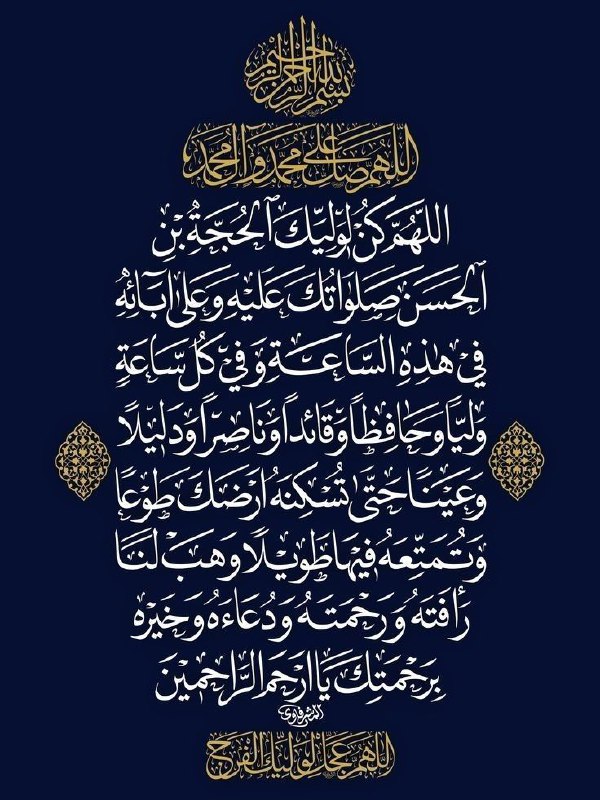 بِسْمِ اللهِ الرَّحْمٰنِ الرَّحِيمِ
اللّٰهُمَّ صَلِّ عَلىٰ مُحَمَّدٍ وَآلِ مُحَمَّدٍ
اللّٰهُمَّ كُنْ لِوَلِيِّكَ ٱلْحُجَّةِ بْنِ
ٱلْحَسَنِ صَلَوٰاتُكَ عَلَيْهِ وَعَلىٰ اٰبَآئِهِ
فِي هٰذِهِ السَّاعَةِ وَفِي كُلِّ سَاعَةٍ
وَلِيًّا وَحَافِظًا وَقَائِداً وَنَاصِرًا وَدَلِيلًا
وَعَيْنًا حَتّىٰ تُسْكِنَهُ أَرْضَكَ طَوْعًا
وَتُمَتِّعَهُ فِيهَا طَوِيلًا وَهَبْ لَنَا
رَأْفَتَهُ وَرَحْمَتَهُ وَدُعَاءَهُ وَخَيْرَهُ
بِرَحْمَتِكَ يَا أَرْحَمَ الرَّاحِمِينَ
الشرفاوي
اللّٰهُمَّ عَجِّلْ لِوَلِيِّكَ الْفَرَجَ